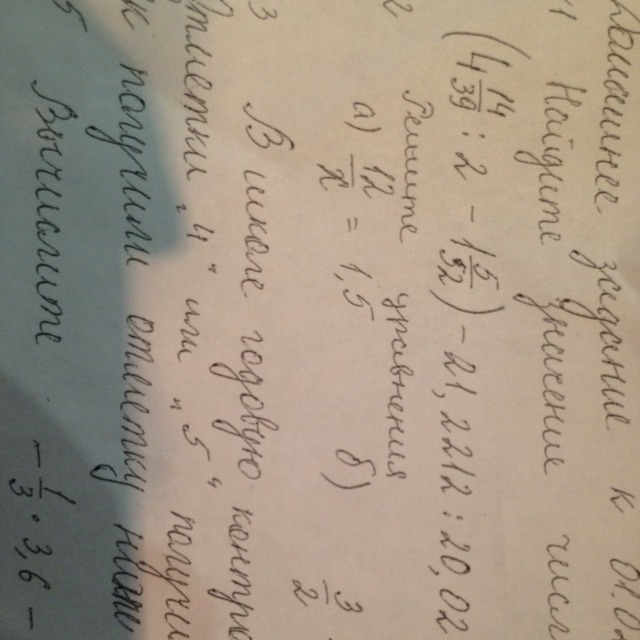 задание к
1 Найдите значение числ
(4 14/39 : 2 - 1 5/52) - 21,2212 : 20,02
2 Решите уравнения
а) 12/x = 1,5 б) 3/2
3 В школе годовую контро
"4" или "5" получи
получили отметку ниж
5 Вычислите -1/3 · 3,6 -